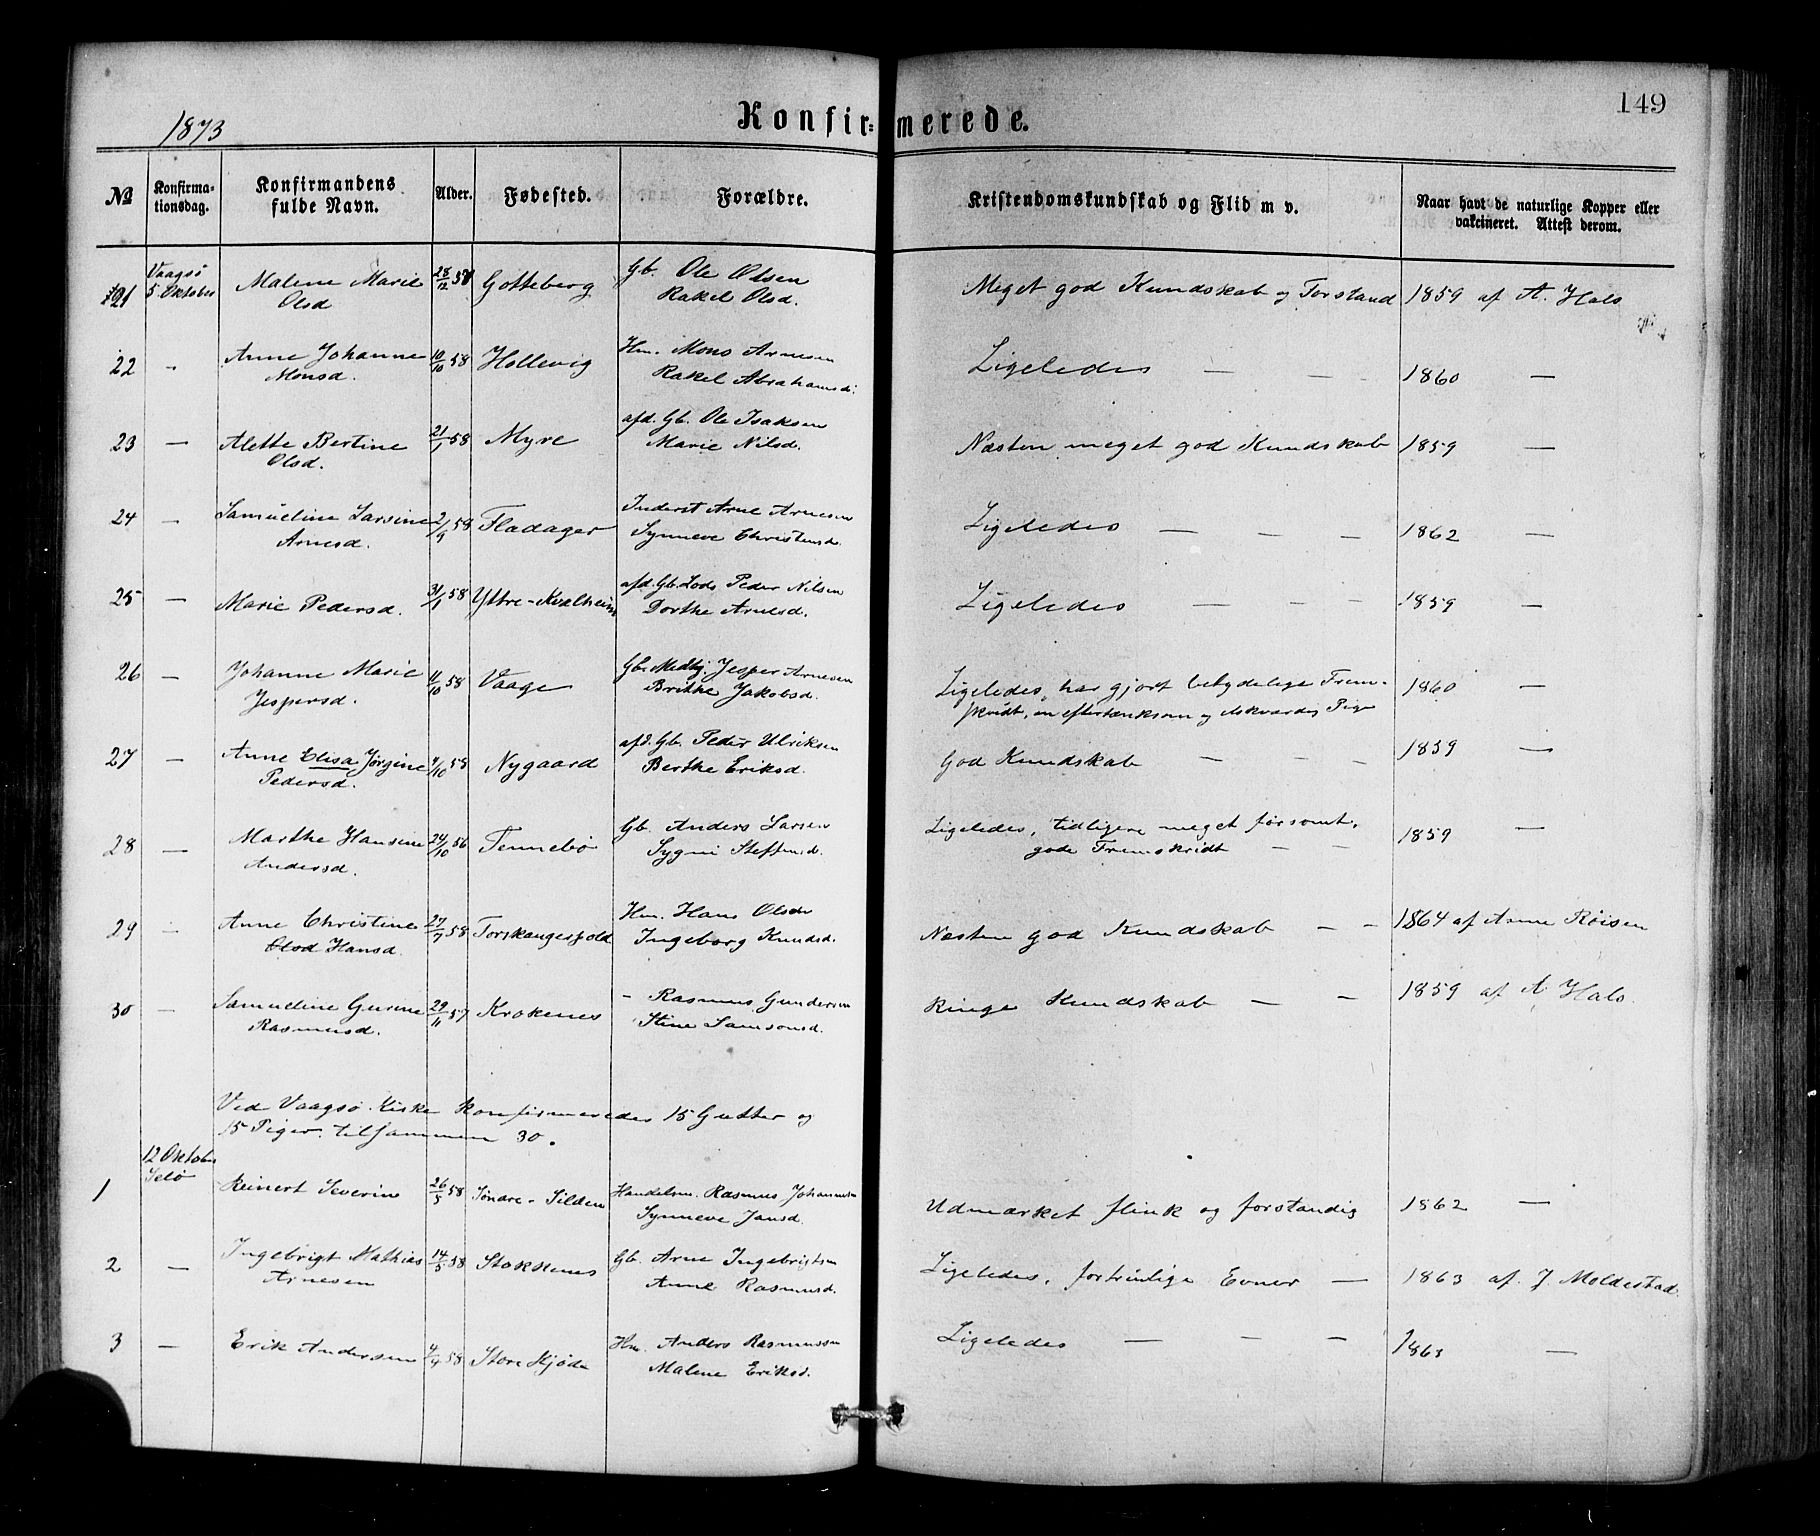 149
1873
Konfirmerede.
No Konfirmationsdag. Konfirmandens fulde Navn. Alder. Fødested. Forældre. Kristendomskundskab og Flid m v. Naar havt de naturlige Kopper eller vakcineret. Attest derom.
21 Vaagsö 5 Oktober Malene Marie Olsd 28/12 58 Gotteberg Gb. Ole Olsen Rakel Olsd. Meget god Kundskab og Forstand 1859 af A. Hals
22 - Anne Johanne Monsd. 10/10 58 Hellevig Hm. Mons Arnesen Rakel Abrahamsd. Ligeledes — — 1860 —
23 — Alette Bertine Olsd. 21/1 58 Myre afd. Gb. Ole Isaksen Marie Nilsd. Næsten meget god Kundskab 1859 —
24 — Samueline Larsine Arnesd. 2/9 58 Fladager Inderst Arne Arnesen Synneve Christensd. Ligeledes — — — 1862 —
25 — Marie Pedersd. 31/1 58 Yttre-Kvalheim afd. Gb. Lods Peder Nilsen Dorthe Arnesd. Ligeledes — — — 1859 —
26 — Johanne Marie Jespersd. 11/10 58 Vaage Gb. Medhj Jesper Arnesen Brithe Jakobsd. Ligeledes, har gjort betydelige Fremskridt, en eftertænksom og elskværdig Pige 1860 —
27 — Anne Elisa Jørgine Pedersd. 4/10 58 Nygaard afd. Gb. Peder Ulriksen Berthe Eriksd. God Kundskab — — — 1859 —
28 — Marthe Hansine Andersd. 24/10 56 Tennebö Gb. Anders Larsen Sygni Steffensd. Ligeledes, tidligere meget forsømt, gode Fremskridt — — 1859 —
29 — Anne Christine Hansd. 27/7 58 Torskangerpold Hm. Hans Olsen Ingeborg Knudsd. Næsten god Kundskab — — 1864 af Anne Röisen
30 — Samueline Gurine Rasmusd. 29/11 57 Krokenes - Rasmus Gundersen Stine Samsonsd. Ringe Kundskab — — 1859 af A Hals.
Ved Vaagsö Kirke konfirmeredes 15 Gutter og
15 Piger. tilsammen 30.
1 12 Oktober Selö Reinert Severin 26/5 58 Søndre-Silden Handelsm. Rasmus Johannesen Synneve Jansd. Udmærket flink og forstandig 1862 —
2 — Ingebrigt Mathias Arnesen 14/5 58 Stokkenes Gb. Arne Ingebrigtsen Anne Rasmusd. Ligeledes, fortrinlige Evner — 1863 af J Moldestad
3 — Erik Andersen 4/9 58 Store Hjøde Hm. Anders Rasmussen Malene Eriksd. Ligeledes — — — 1863 —